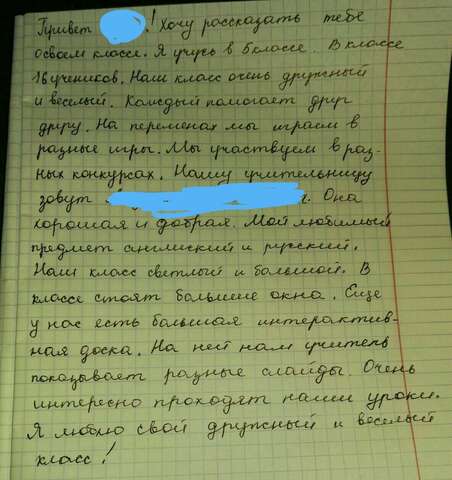 Привет ! Хочу рассказать тебе
о своем классе. Я учусь в 5 классе. В классе
16 учеников. Наш класс очень дружный
и веселый. Каждый помогает друг
другу. На переменах мы играем в
разные игры. Мы участвуем в раз-
ных конкурсах. Нашу учительницу
зовут . Она
хорошая и добрая. Мой любимый
предмет английский и русский.
Наш класс светлый и большой. В
классе стоят большие окна. Еще
у нас есть большая интерактив-
ная доска. На ней нам учитель
показывает разные слайды. Очень
интересно проходят наши уроки.
Я люблю свой дружный и веселый
класс!